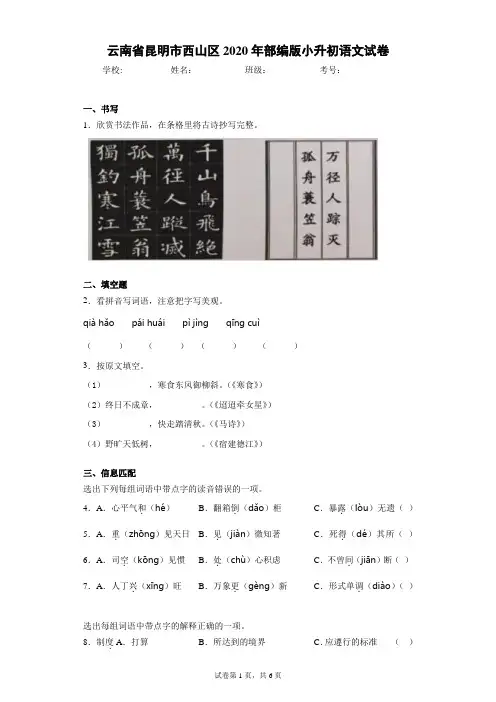 云南省昆明市西山区2020年部编版小升初语文试卷
学校: 姓名： 班级： 考号：
一、书写
1．欣赏书法作品，在条格里将古诗抄写完整。
千山鳥飛絶
萬徑人蹤滅
孤舟蓑笠翁
獨釣寒江雪
万径人踪灭
孤舟蓑笠翁
二、填空题
2．看拼音写词语，注意把字写美观。
qià hǎo pái huái pì jìng qīng cuì
（ ） （ ） （ ） （ ）
3．按原文填空。
（1）________，寒食东风御柳斜。（《寒食》）
（2）终日不成章，________。（《迢迢牵女星》）
（3）________，快走踏清秋。（《马诗》）
（4）野旷天低树，________。（《宿建德江》）
三、信息匹配
选出下列每组词语中带点字的读音错误的一项。
4．A．心平气和（hé） B．翻箱倒（dǎo）柜 C．暴露（lòu）无遗（ ）
5．A．重（zhōng）见天日 B．见（jiàn）微知著 C．死得（dé）其所（ ）
6．A．司空（kōng）见惯 B．处（chù）心积虑 C．不曾间（jiān）断（ ）
7．A．人丁兴（xīng）旺 B．万象更（gèng）新 C．形式单调（diào）（ ）
选出每组词语中带点字的解释正确的一项。
8．制度 A．打算 B．所达到的境界 C.应遵行的标准 （ ）
试卷第1页，共6页